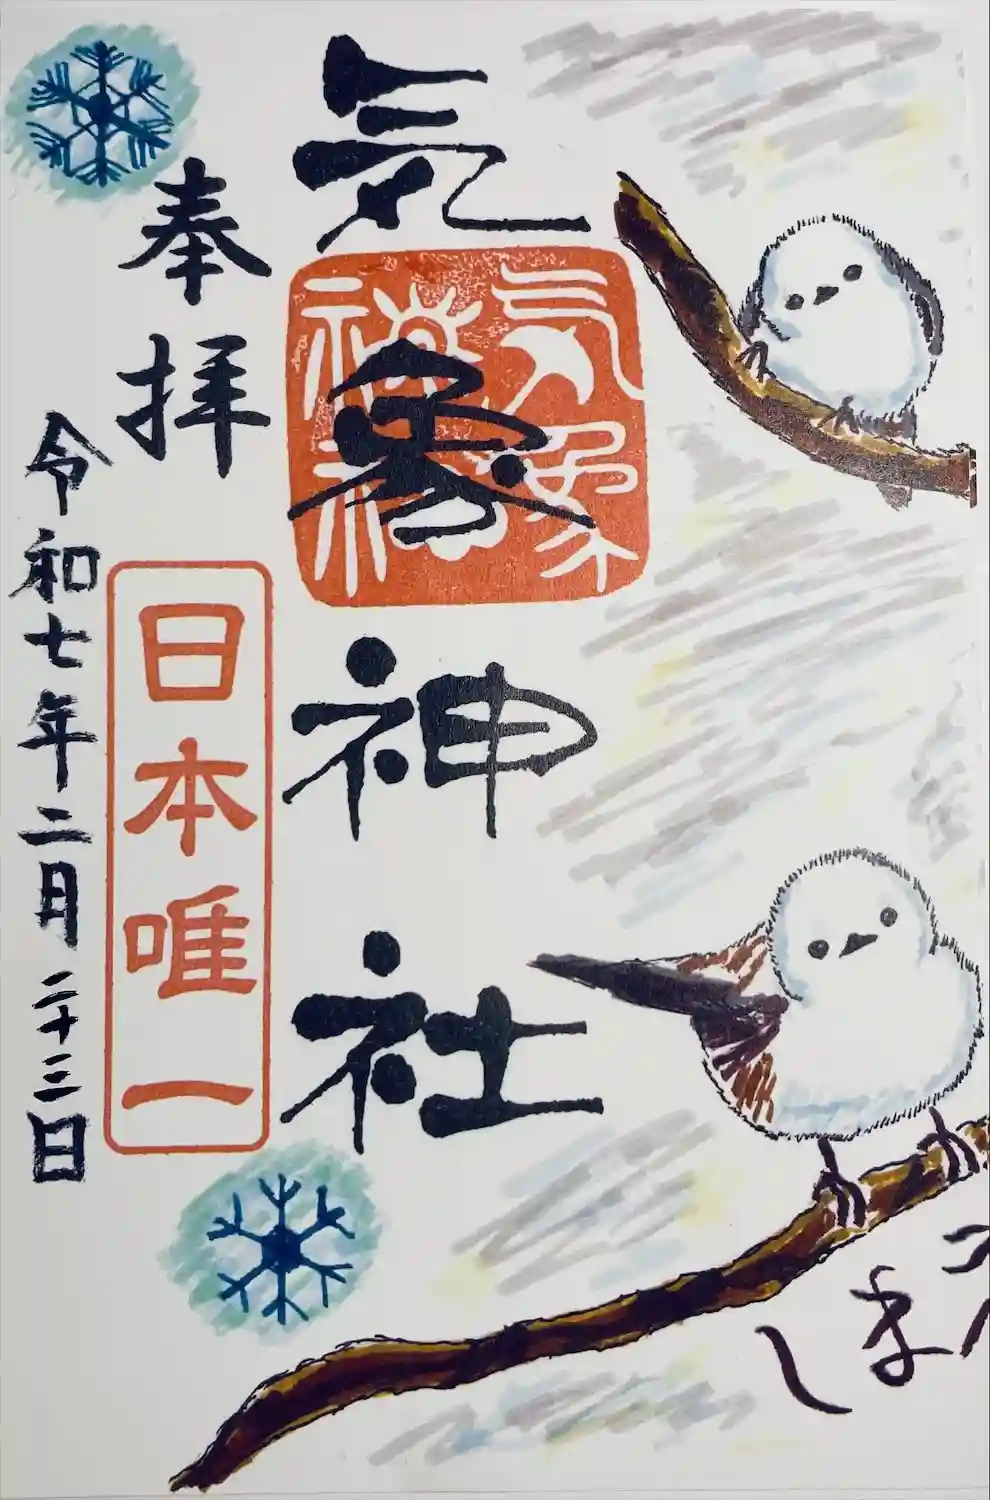 気象神社
気象
神社
奉拝
日本唯一
令和七年二月二十三日
しま